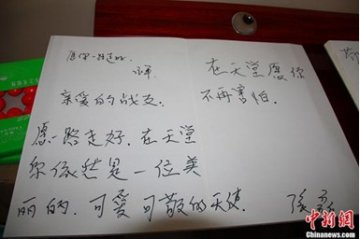 愿你一路走好.
亲爱的战友.
愿一路走好.在天堂
你依然是一位美
丽的.可爱可敬的天使.
在天堂愿你
不再害怕.
中新网